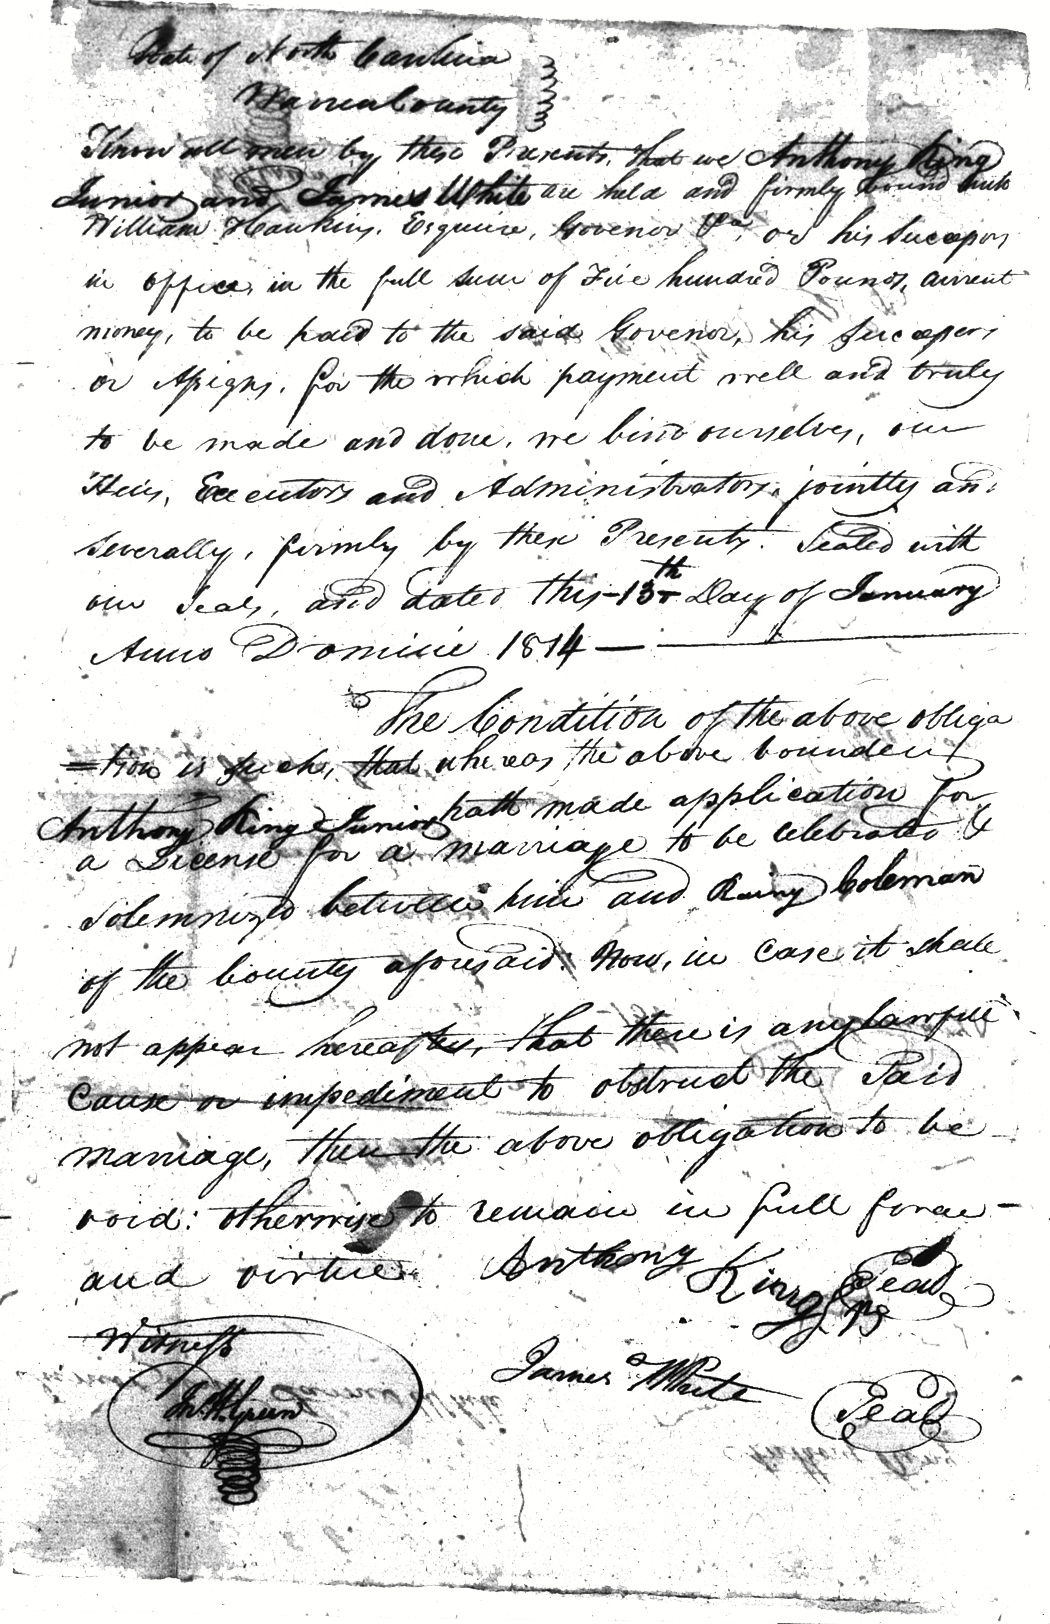 State of North Carolina
Warren County
Know all men by these Presents, that we Anthony King
Junior and James White are held and firmly bound unto
William Hawkins, Esquire, Govenor &c, or his Successors
in office, in the full sum of Five hundred Pounds, current
money, to be paid to the said Govenor, his Successors
or Assigns, for the which payment well and truly
to be made and done, we bind ourselves, our
Heirs, Executors and Administrators, jointly and
severally, firmly by these Presents. Sealed with
our Seals, and dated this 13th Day of January
Anno Domini 1814
The Condition of the above obliga
=tion is such, that whereas the above bounden
Anthony King Junior hath made application for
a License for a marriage to be celebrated &
solemnized between him and Rainy Coleman
of the County aforesaid: Now, in case it shall
not appear hereafter, that there is any lawful
cause or impediment to obstruct the said
marriage, then the above obligation to be
void: otherwise to remain in full force
and virtue.
Anthony King Seal
James White Seal
Witness